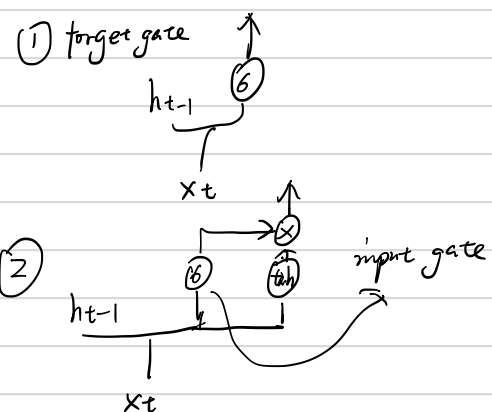 ① forget gate
6
ht-1
xt
x
② 6 tah input gate
ht-1
xt